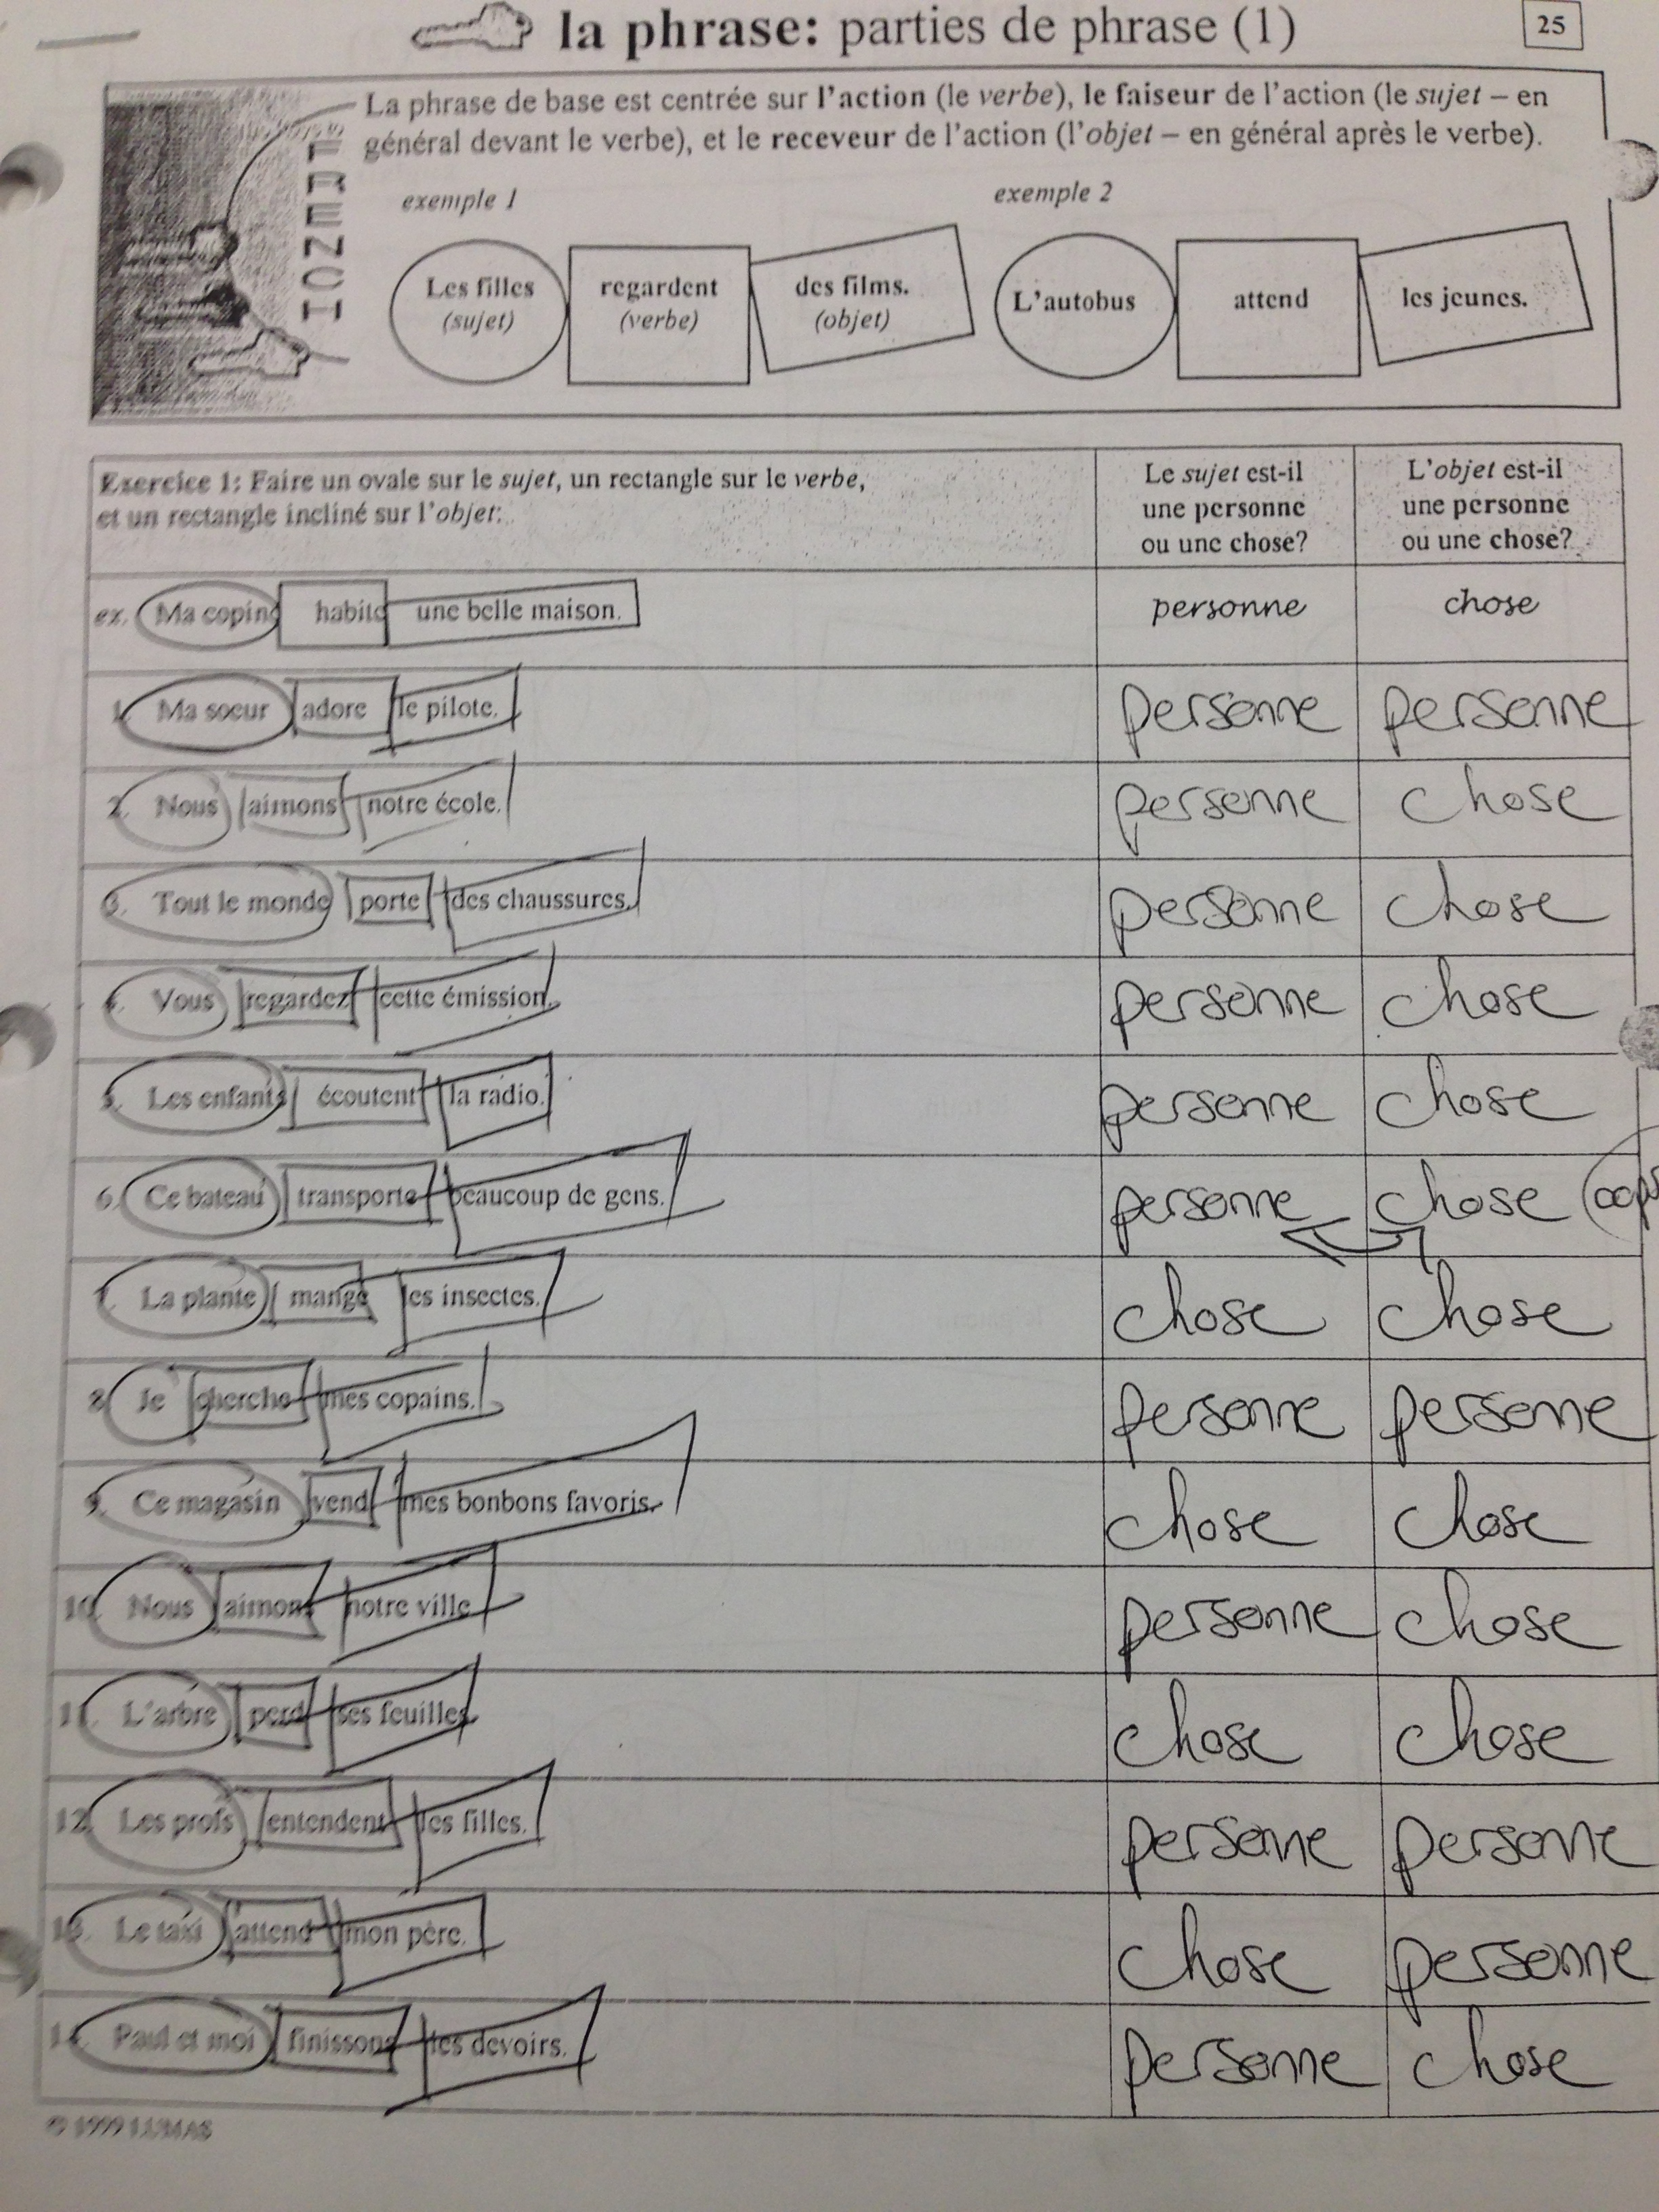 la phrase: parties de phrase (1)
25
FRENCH
La phrase de base est centrée sur l'action (le verbe), le faiseur de l'action (le sujet – en
général devant le verbe), et le receveur de l'action (l'objet – en général après le verbe).
exemple 1
exemple 2
Les filles regardent des films.
(sujet) (verbe) (objet)
L'autobus attend les jeunes.
Exercice 1: Faire un ovale sur le sujet, un rectangle sur le verbe,
et un rectangle incliné sur l'objet:
Le sujet est-il
une personne
ou une chose?
L'objet est-il
une personne
ou une chose?
ex. Ma copine habite une belle maison. personne chose
1. Ma soeur adore le pilote. personne personne
2. Nous aimons notre école. personne chose
3. Tout le monde porte des chaussures. personne chose
4. Vous regardez cette émission. personne chose
5. Les enfants écoutent la radio. personne chose
6. Ce bateau transporte beaucoup de gens. personne chose
7. La plante mange les insectes. chose chose
8. Je cherche mes copains. personne personne
9. Ce magasin vend mes bonbons favoris. chose chose
10. Nous aimons notre ville. personne chose
11. L'arbre perd ses feuilles. chose chose
12. Les profs entendent les filles. personne personne
13. Le taxi attend mon père. chose personne
14. Paul et moi finissons les devoirs. personne chose
© 1999 LUMAS